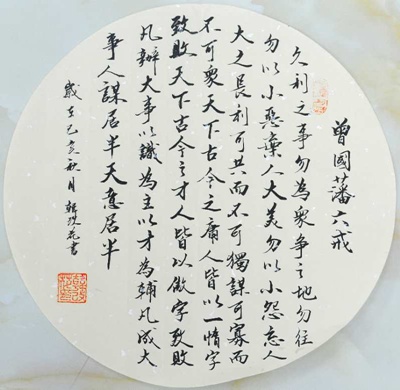 曾國藩六戒
久利之事勿為眾爭之地勿往
勿以小惡棄人大美勿以小怨忘人
大之長利可共而不可獨謀可寡而
不可眾天下古今之庸人皆以一惰字
致敗天下古今之才人皆以傲字致敗
凡辦大事以識為主以才為輔凡成大
事人謀居半天意居半
歲在己亥秋月 花書